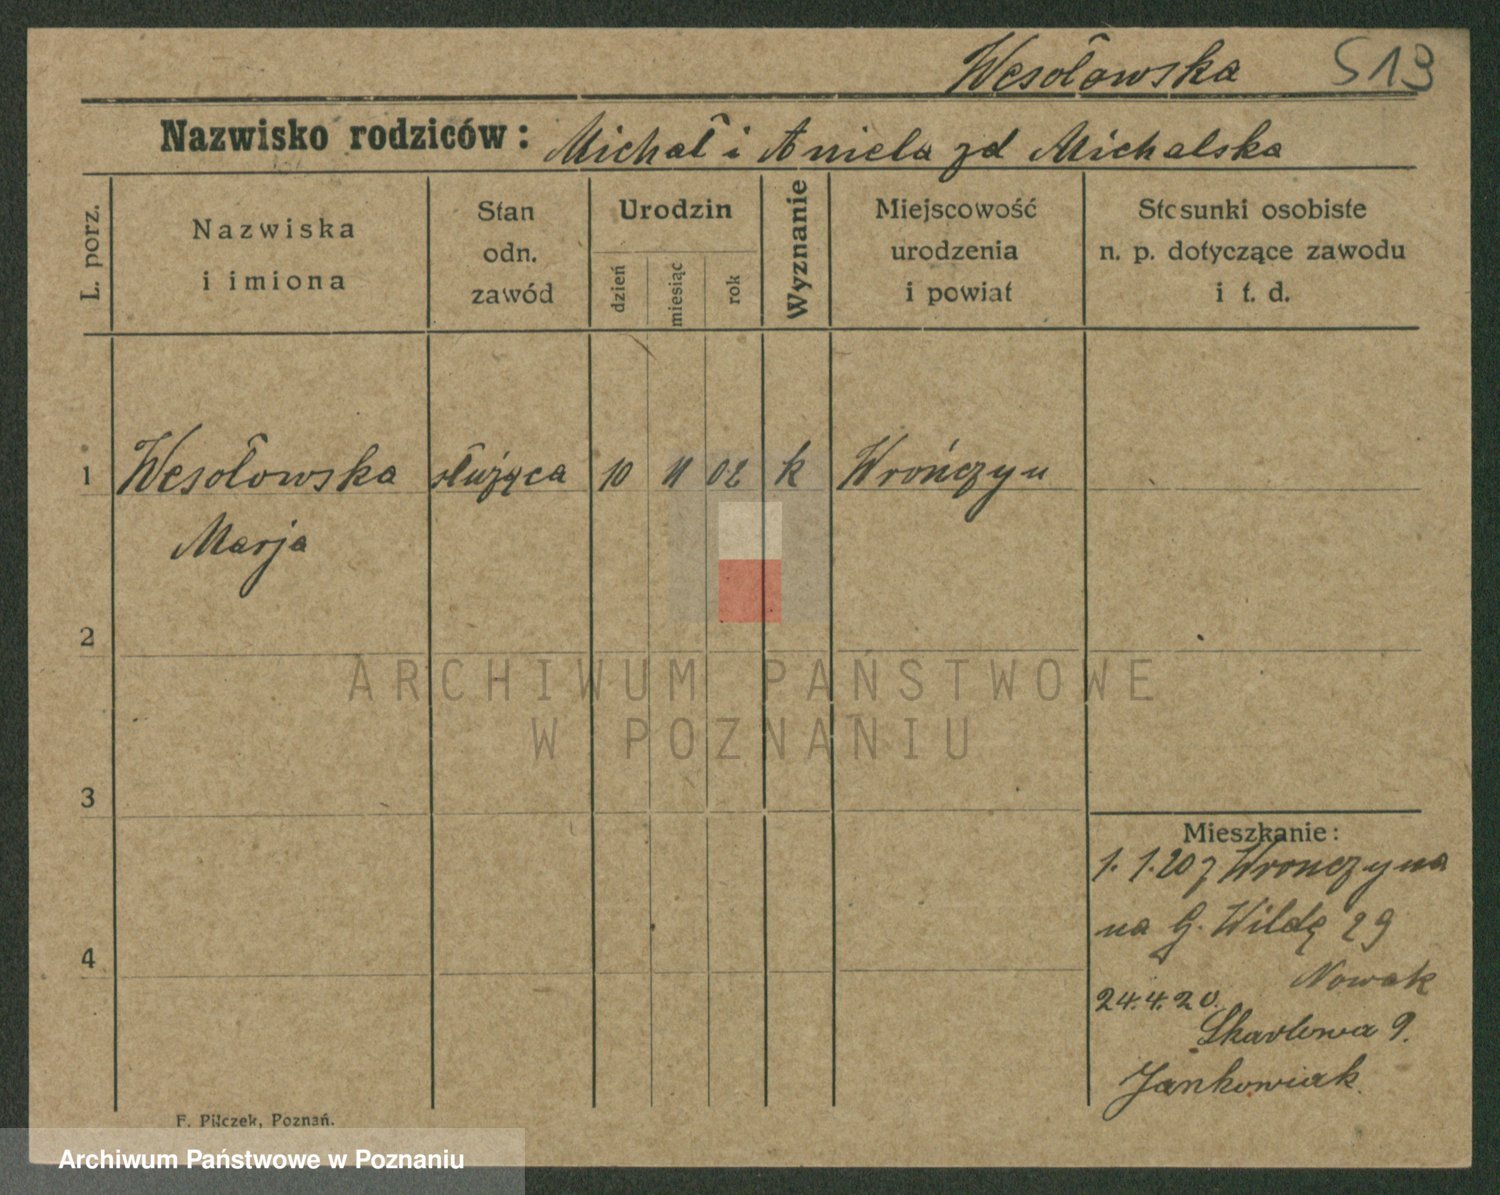 Wesołowska 513
Nazwisko rodziców: Michał i Aniela zd Michalska
L. porz.
Nazwiska
i imiona
Stan
odn.
zawód
Urodzin
dzień
miesiąc
rok
Wyznanie
Miejscowość
urodzenia
i powiat
Stosunki osobiste
n. p. dotyczące zawodu
i t. d.
1 Wesołowska służąca 10 11 02 k Wrończyn
Marja
2
3
4
Mieszkanie:
1. 1.20 z Wronczyna
na G. Wildę 29
Nowak
24.4.20.
Skarbowa 9.
Jankowiak
F. Pilczek, Poznań.
ARCHIWUM PAŃSTWOWE
W POZNANIU
Archiwum Państwowe w Poznaniu